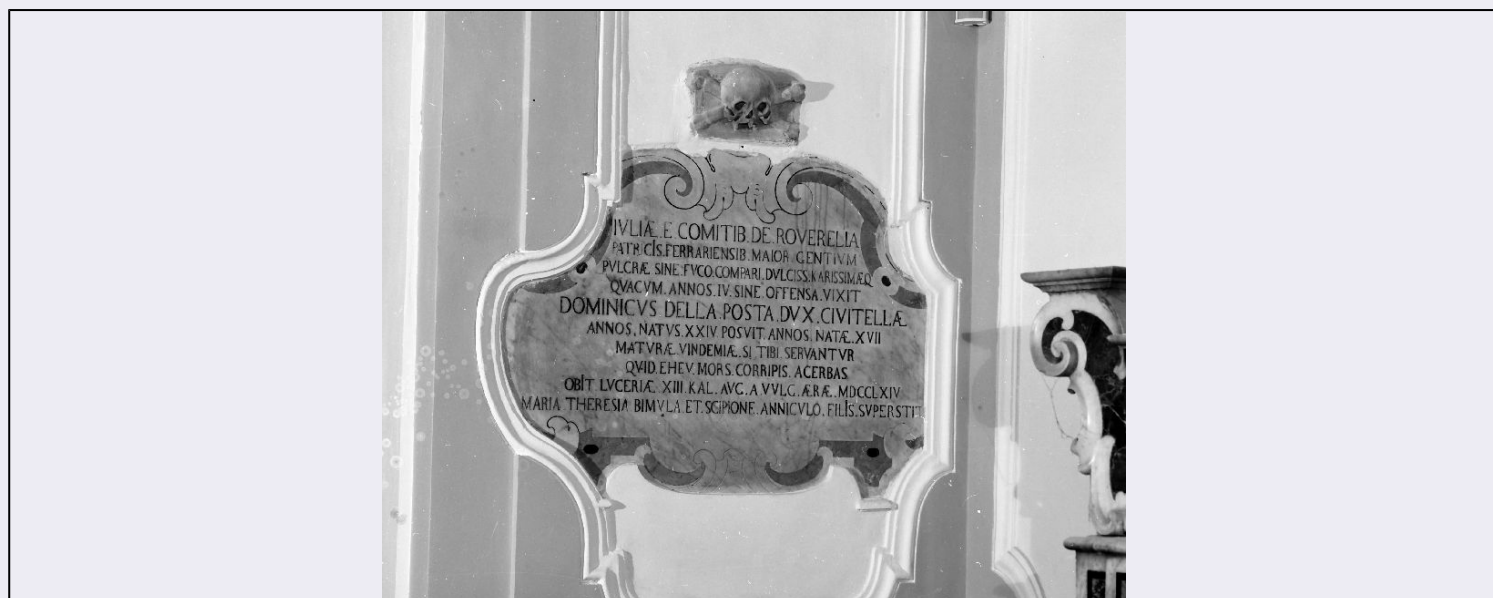 IVLIÆ.E COMITIB.DE ROVERELIA
PATRICĪS.FERRARIENSIB.MAIOR.GENTIVM
PVLCRÆ SINE FVCO.COMPARI.DVLCISS.KARISSIMÆQ
QVACVM.ANNOS.IV.SINE OFFENSA.VIXIT
DOMINICVS DELLA.POSTA.DVX.CIVITELLÆ
ANNOS.NATVS.XXIV POSVIT.ANNOS.NATÆ.XVII
MATVRÆ.VINDEMIÆ.SI TIBI SERVANTVR
QVID.EHEV.MORS.CORRIPIS.ACERBAS
OBĪT LVCERIÆ XIII.KAL.AVG.A VVLG.ÆRÆ.MDCCLXIV
MARIA THERESIA BIMVLA.ET.SCIPIONE.ANNICVLO.FILĪS.SVPERSTIT